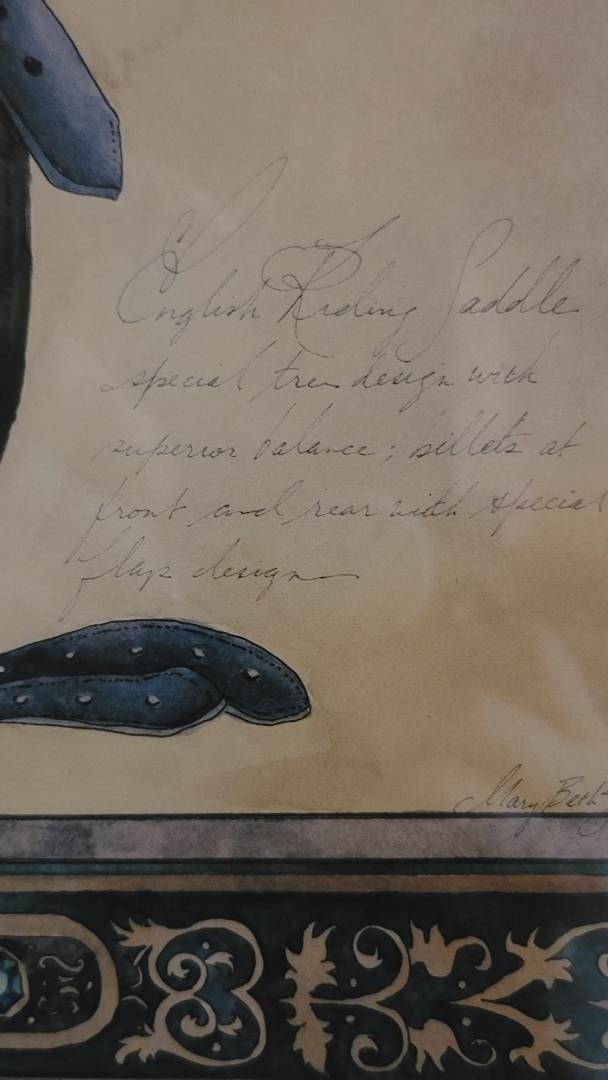 English Riding Saddle
special tree design with
superior balance; billets at
front and rear with special
flap design
Mary Beth